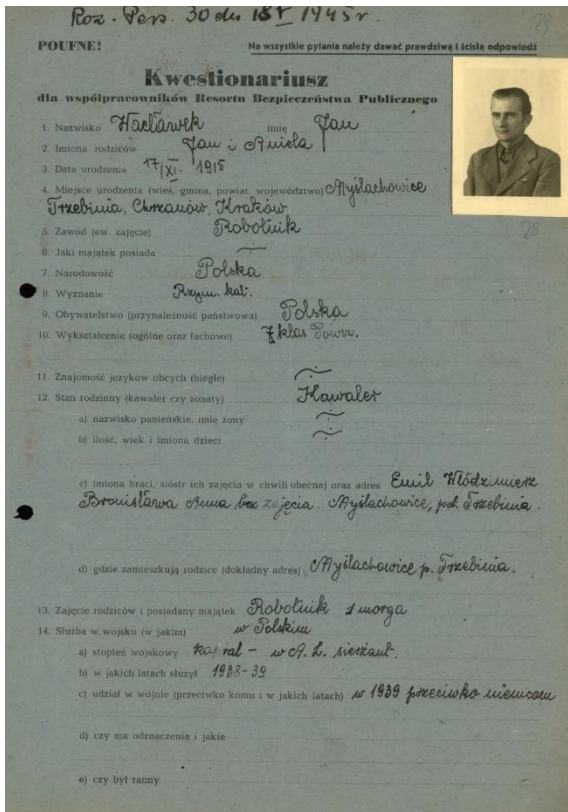 Roz. Pers. 30 dn 18 V 1945 r.
28
POUFNE!
Na wszystkie pytania należy dawać prawdziwą i ścisłą odpowiedź
Kwestionariusz
dla współpracowników Resortu Bezpieczeństwa Publicznego
1. Nazwisko Wacławek imię Jan
2. Imiona rodziców Jan i Aniela
3. Data urodzenia 17/XI. 1915
4. Miejsce urodzenia (wieś, gmina, powiat, województwo) Myślachowice
Trzebinia, Chrzanów, Kraków
28
5. Zawód (ew. zajęcie) Robotnik
6. Jaki majątek posiada
7. Narodowość Polska
8. Wyznanie Rzym. kat.
9. Obywatelstwo (przynależność państwowa) Polska
10. Wykształcenie (ogólne oraz fachowe) 7 klas Powsz.
11. Znajomość języków obcych (biegle)
12. Stan rodzinny (kawaler czy żonaty) Kawaler
a) nazwisko panieńskie, imię żony
b) ilość, wiek i imiona dzieci
c) imiona braci, sióstr ich zajęcia w chwili obecnej oraz adres Emil Włódzimierz
Bronisława Anna bez zajęcia. Myślachowice, pot. Trzebinia.
d) gdzie zamieszkują rodzice (dokładny adres) Myślachowice p. Trzebinia.
13. Zajęcie rodziców i posiadany majątek Robotnik 1 morga
14. Służba w wojsku (w jakim) w Polskim
a) stopień wojskowy kapral – w A. L. sierżant.
b) w jakich latach służył 1938-39
c) udział w wojnie (przeciwko komu i w jakich latach) w 1939 przeciwko niemcom
d) czy ma odznaczenia i jakie
e) czy był ranny